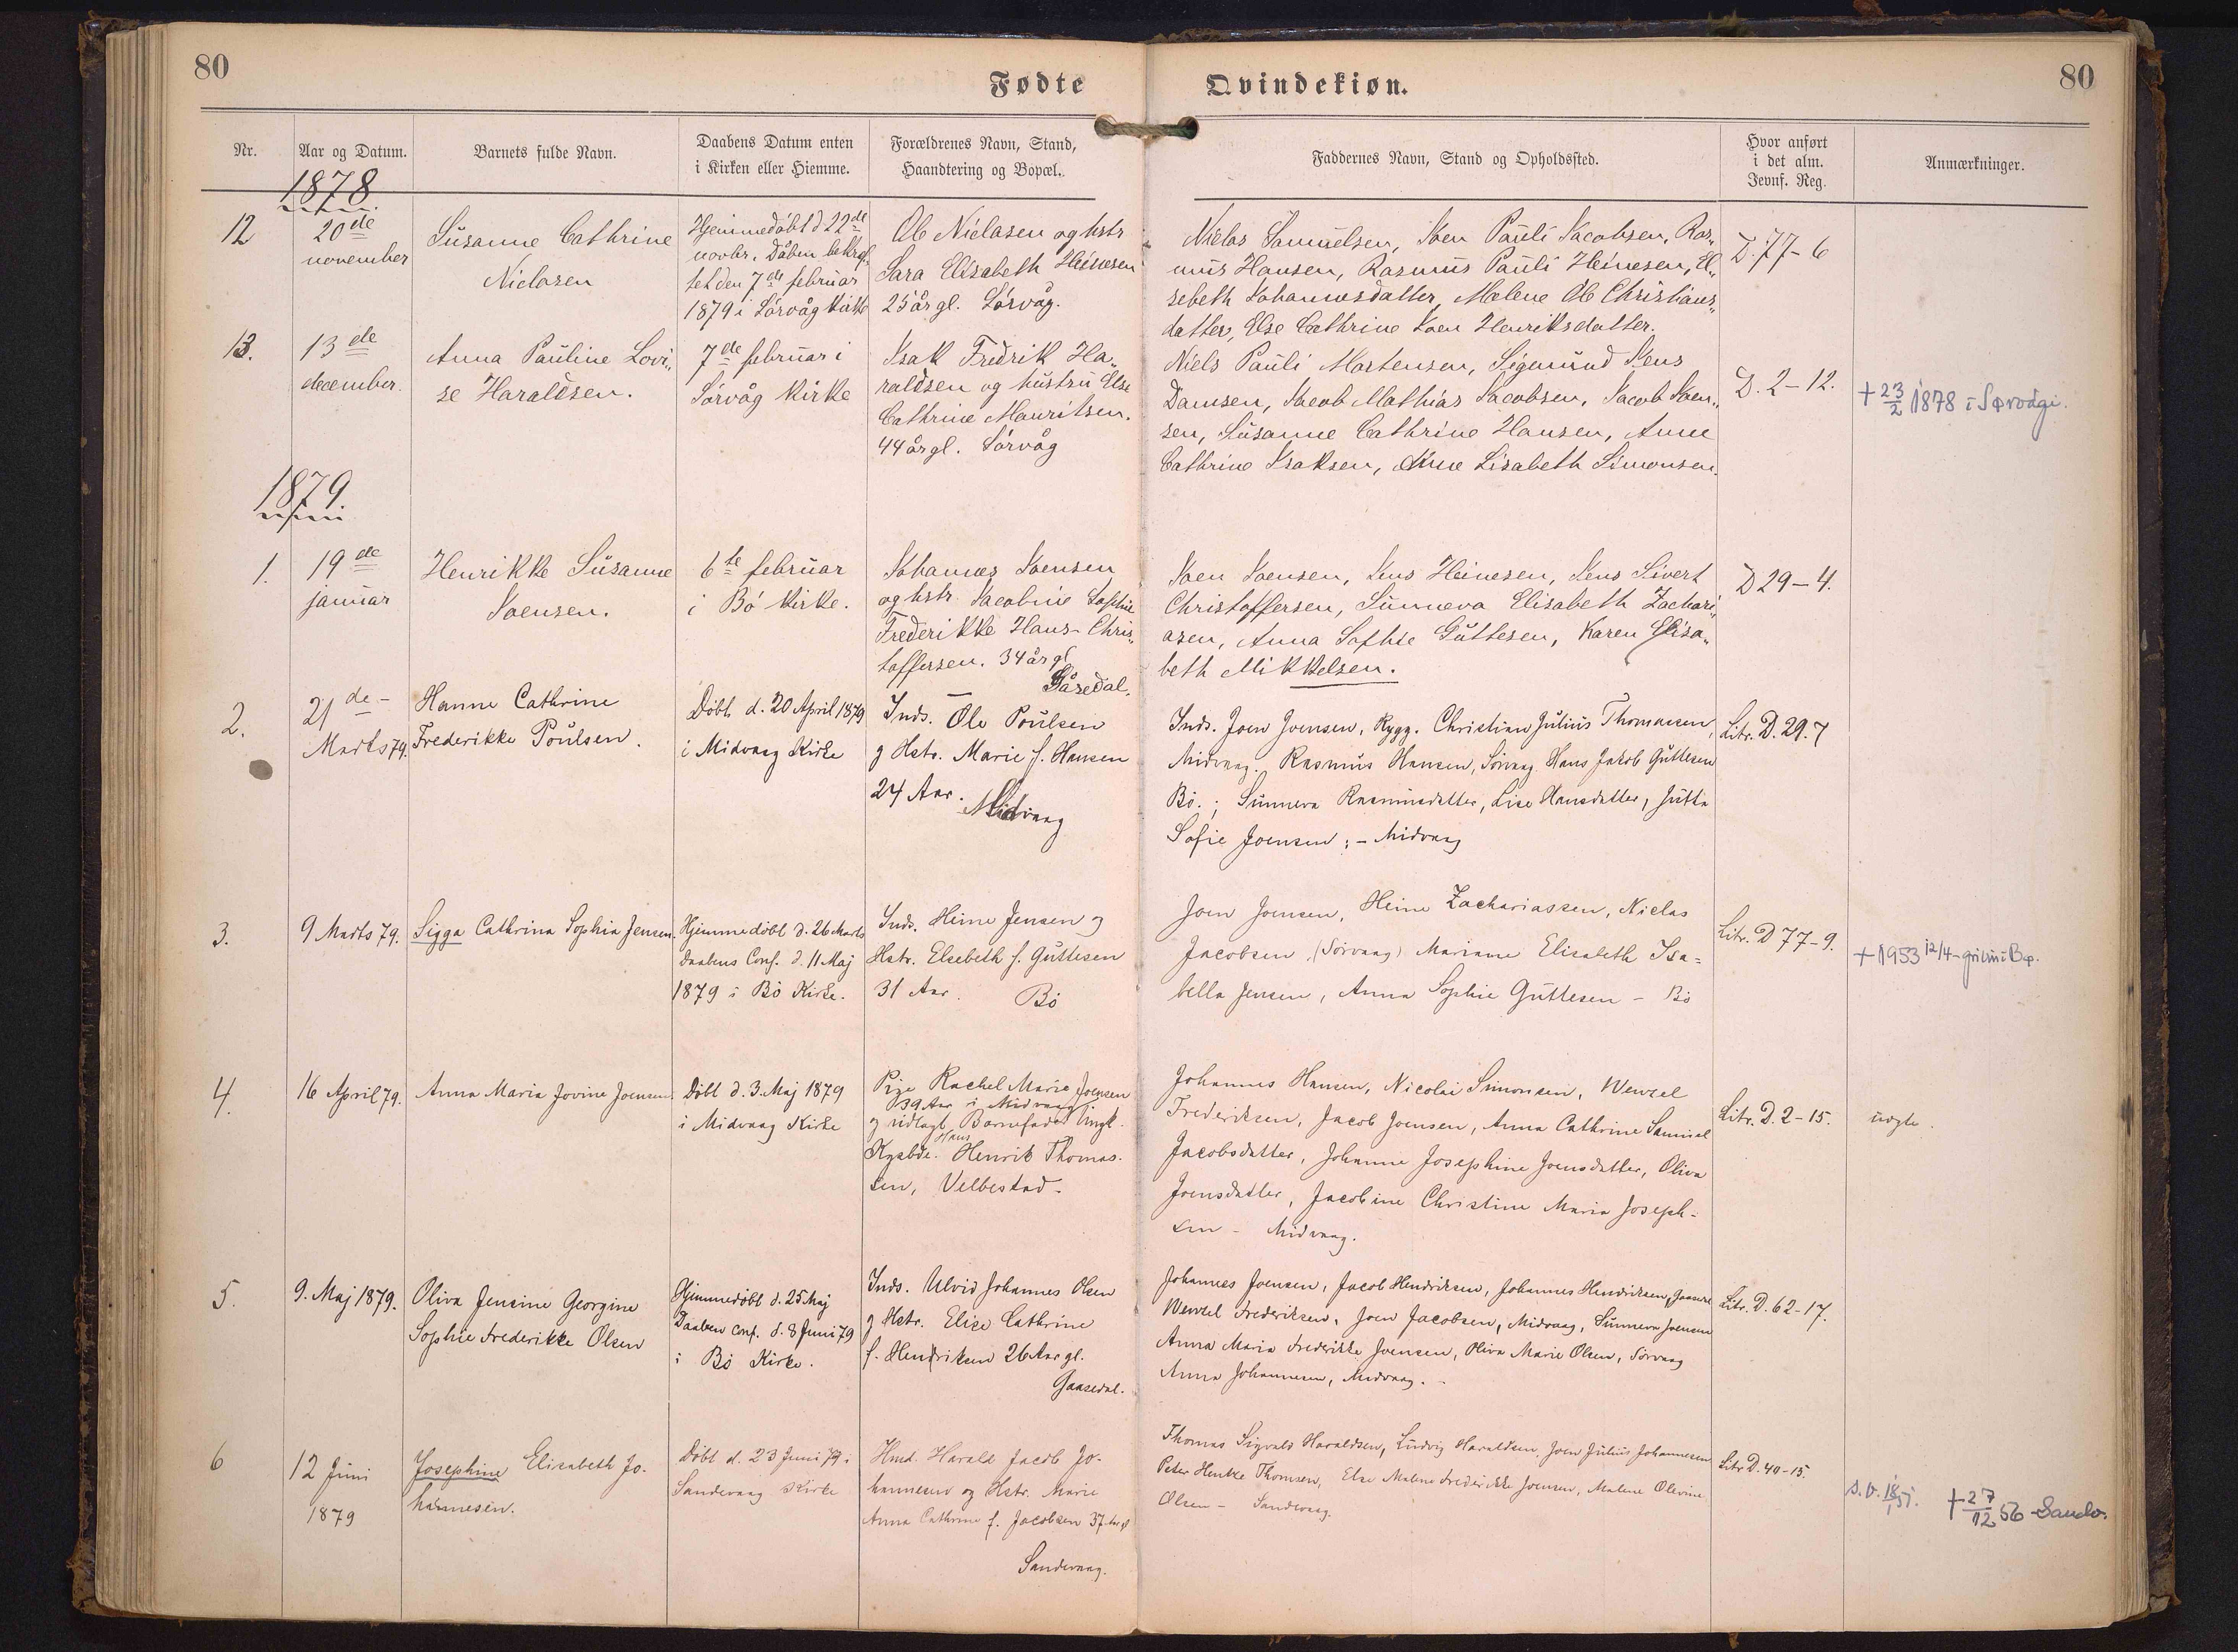 80
Fødte
Qvindekiøn.
80
Nr.
Aar og Datum.
Barnets fulde Navn.
Daabens Datum enten
i Kirken eller Hiemme.
Forældrenes Navn, Stand,
Haandtering og Bopæl.
Faddernes Navn, Stand og Opholdssted.
Hvor anført
i det alm.
Jevnf. Reg.
Anmærkninger.
1878
12
20de
november
Susanne Cathrine
Niclasen
Hjemmedøbt d 22de
novbr. Dåben bekræf-
tet den 7de februar
1879 i Sørvåg kirke
Ole Niclasen og hstr
Sara Elisabeth Heinesen
25 år gl. Sørvåg.
Niclas Samuelsen, Joen Pauli Jacobsen, Ras„
mus Hansen, Rasmus Pauli Heinesen, El„
sebeth Johannesdatter, Malene Ole Christians„
datter, Else Cathrine Joen Henriksdatter.
D. 77-6
13.
13de
december.
Anna Pauline Lovi„
se Haraldsen.
7de februar i
Sørvåg kirke
Isak Fredrik Ha„
raldsen og hustru Else
Cathrine Mauritsen.
44 år gl. Sørvåg
Niels Pauli Mortensen, Sigmund Jens
Damsen, Jacob Mathias Jacobsen, Jacob Joen„
sen, Susanne Cathrine Hansen, Anne
Cathrine Isaksen, Anne Lisabeth Simonsen.
D. 2-12.
+ 23/2 1878 í Sørvági.
1879
1.
19de
januar
Henrikke Susanne
Joensen.
6te februar
i Bø kirke.
Johannes Joensen
og hstr. Jacobine Sophie
Frederikke Hans-Chris„
toffersen. 34 år gl
Gåsedal.
Joen Joensen, Jens Heinesen, Jens Sivert
Christoffersen, Sunneva Elisabeth Zachari„
asen, Anna Sophie Guttesen, Karen Elisa„
beth Mikkelsen.
D 29-4.
2.
21de -
Marts 79.
Hanne Cathrine
Frederikke Poulsen.
Døbt d. 20 April 1879
i Midvaag Kirke
Inds. Ole Poulsen
og Hstr. Marie f. Hansen
24 Aar.
Midvaag
Inds. Joen Joensen, Rygg. Christian Julius Thomassen,
Midvaag. Rasmus Hansen, Sørvaag. Hans Jakob Guttesen
Bø.; Sunneva Rasmusdatter, Lise Hansdatter, Jutta
Sofie Joensen; - Midvaag
Litr. D. 29.7
3.
9 Marts 79.
Sigga Cathrina Sophia Jensen.
Hjemmedøbt d. 26 Marts
Daabens Conf. d. 11 Maj
1879 i Bø Kirke.
Inds. Heine Jensen og
Hstr. Elsebeth f. Guttesen
31 Aar. Bø
Joen Joensen, Heine Zachariassen, Niclas
Jacobsen, (Sørvaag) Mariane Elisabeth Isa=
bella Jensen, Anna Sophie Guttesen - Bø
Litr. D 77-9.
+ 1953 12/4 - í Bø.
4.
16 April 79.
Anna Maria Jovine Joensen.
Døbt d. 3. Maj 1879
i Midvaag Kirke
Pige Rachel Marie Joensen
39 Aar i Midvaag
og udlagt Barnefader Ungk.
Hans
Henrik Thomas-
sen, Velbestad.
Johannes Hansen, Nicolai Simonsen, Wenzel
Frederiksen, Jacob Joensen, Anna Cathrine Samuel
Jacobsdatter, Johanne Josephine Joensdatter, Oliva
Joensdatter, Jacobine Christine Maria Joseph-
sen - Midvaag.
Litr. D. 2-15.
uægte.
5.
9. Maj 1879.
Oliva Jensine Georgine
Sophie Frederikke Olsen
Hjemmedøbt d. 25 Maj
Daaben conf. d. 8 Juni 79
i Bø Kirke.
Inds. Ulvid Johannes Olsen
og Hstr. Elise Cathrine
f. Hendriksen 26 Aar gl.
Gaasedal.
Johannes Joensen, Jacob Hendriksen, Johannes Hendriksen, Gaasedal
Wenzel Frederiksen, Joen Jacobsen, Midvaag, Sunneva Joensen
Anna Maria Frederikke Joensen, Oliva Marie Olsen, Sørvaag
Anna Johannesen, Midvaag.
Litr. D. 62-17.
6
12 Juni
1879
Josephine Elisabeth Jo-
hannesen.
Døbt d. 23 Juni 79 i
Sandevaag Kirke
Hmd. Harald Jacob Jo-
hannesen og Hstr. Marie
Anna Cathrine f. Jacobsen 37 Aar gl
Sandevaag.
Thomas Sigvald Haraldsen, Ludvig Haraldsen, Joen Julius Johannesen
Peter Henke Thomsen, Else Malene Frederikke Joensen, Malene Olevine
Olsen - Sandevaag.
Litr D. 40-15.
+ 27/12 56 Sandv.